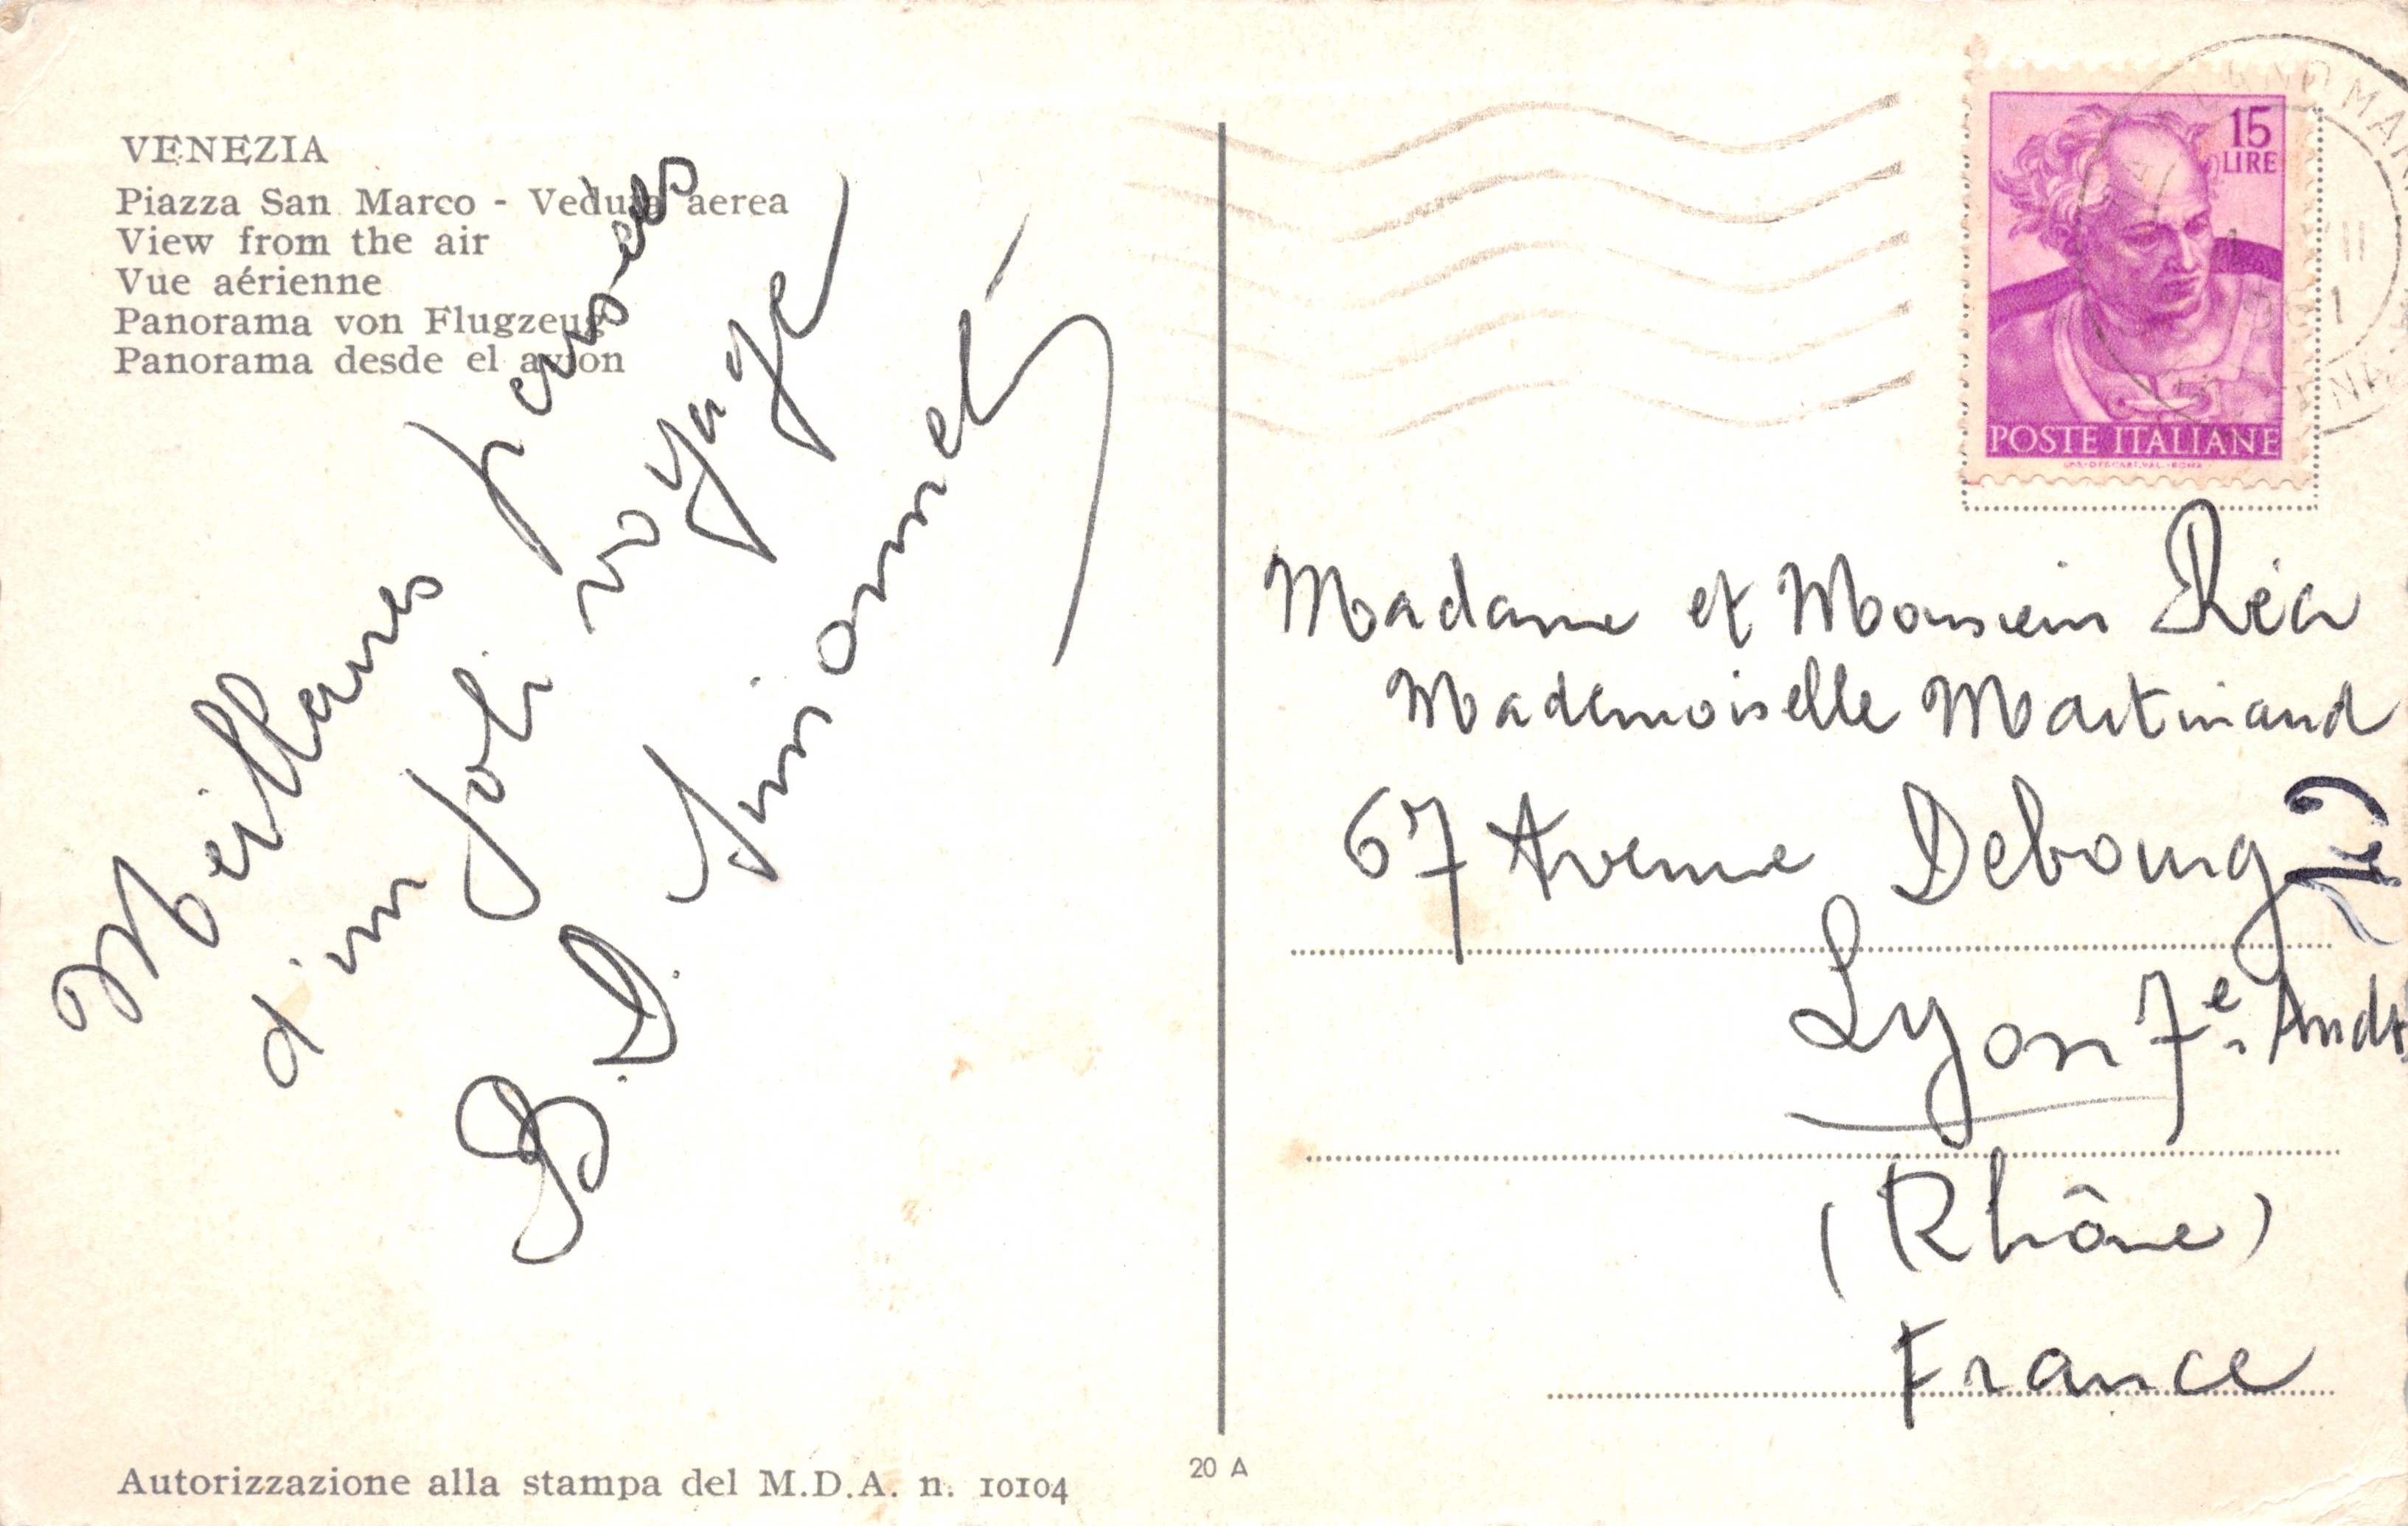 VENEZIA
Piazza San Marco - Veduta aerea
View from the air
Vue aérienne
Panorama von Flugzeug
Panorama desde el avion
Meilleures pensées
d'un joli voyage
B. D. Simonet
Autorizzazione alla stampa del M.D.A. n. 10104
20 A
15
LIRE
POSTE ITALIANE
Madame et Monsieur Réa
Mademoiselle Martinand
67 Avenue Debourg
Lyon 7e Arrdt
(Rhône)
France